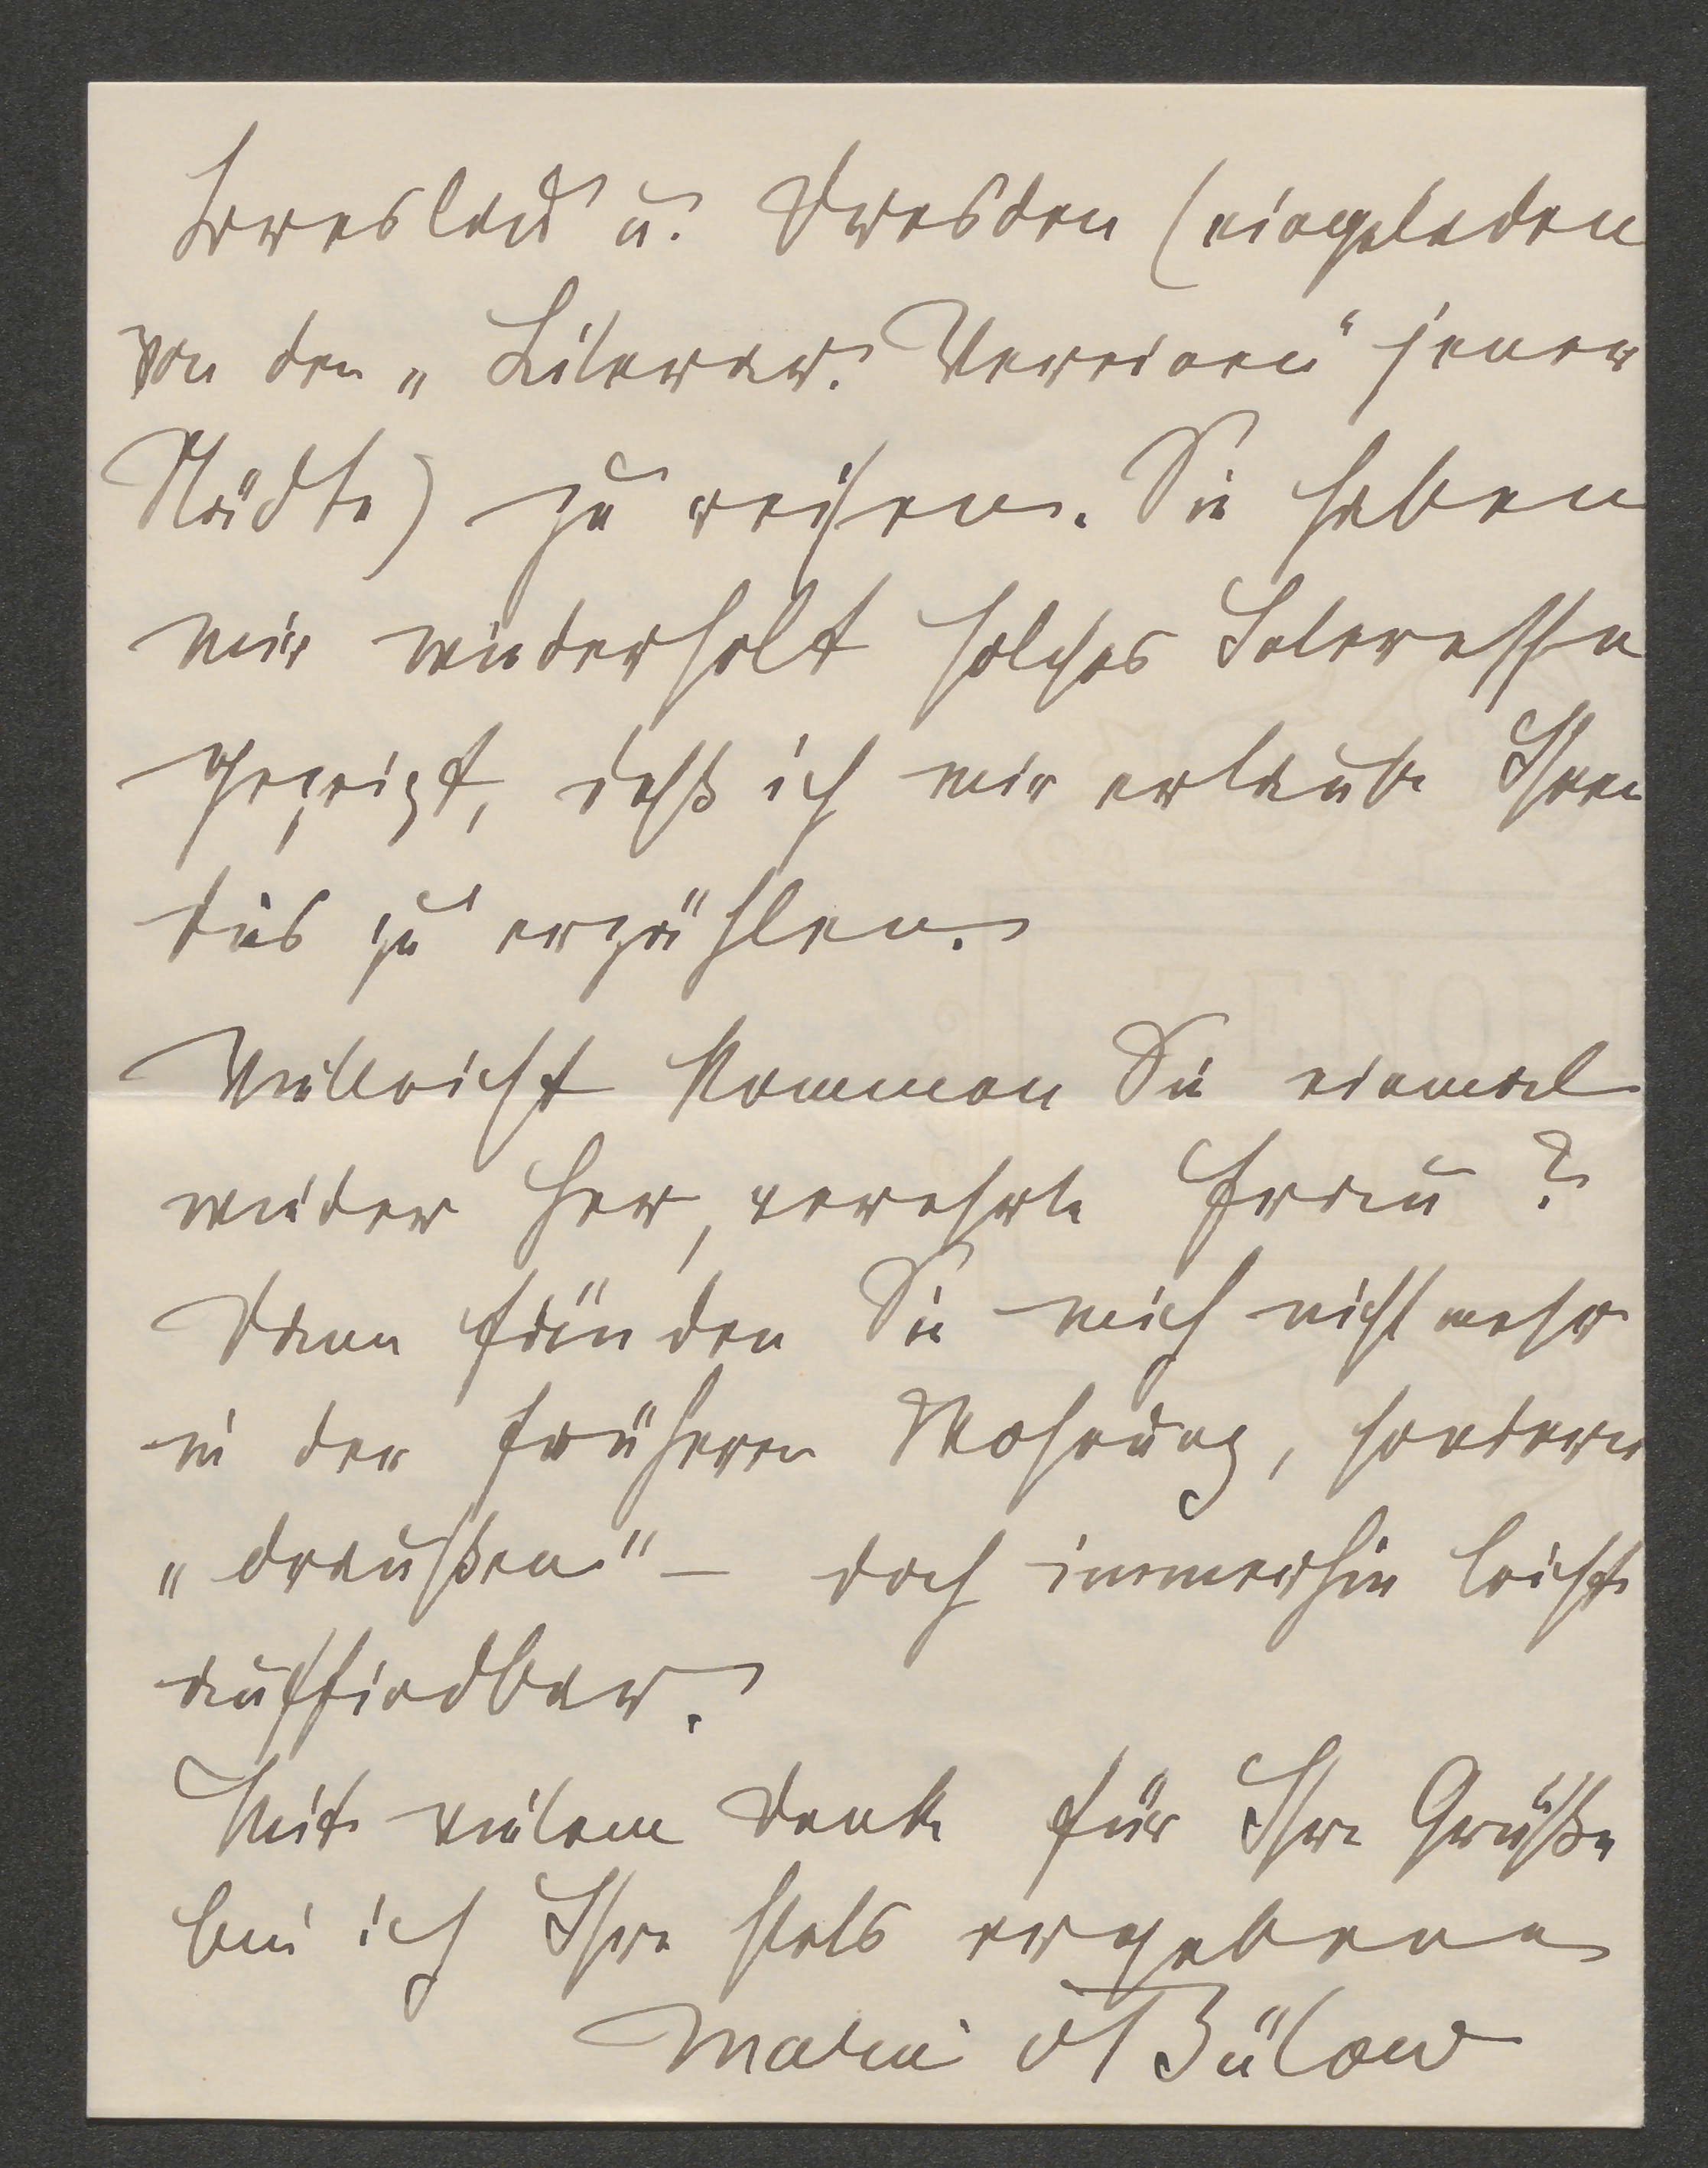 Breslau u. Dresden (eingeladen
von den „Literar. Vereinen“ jener
Städte) zu reisen. Sie haben
mir wiederholt solches Interesse
gezeigt, daß ich mir erlaube Ihnen
dies zu erzählen.
Vielleicht kommen Sie einmal
wieder her, verehrte Frau?
Dann fänden Sie mich nicht mehr
in der früheren Wohnung, sondern
„draußen“ – doch immerhin leicht
auffindbar.
Mit vielem Dank für Ihre Grüße
bin ich Ihre stets ergebene
Marie v Bülow